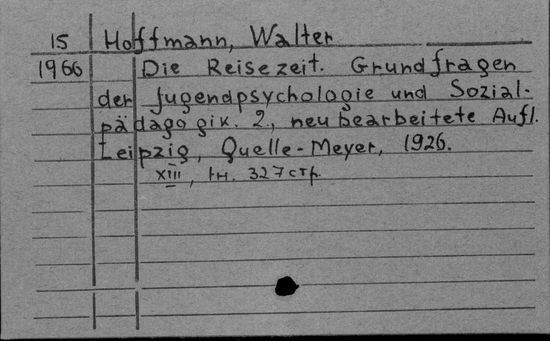 15 Hoffmann, Walter
1966 Die Reisezeit. Grundfragen
der Jugendpsychologie und Sozial-
pädagogik. 2., neubearbeitete Aufl.
Leipzig, Quelle-Meyer, 1926.
XIII, 1н. 327 стр.